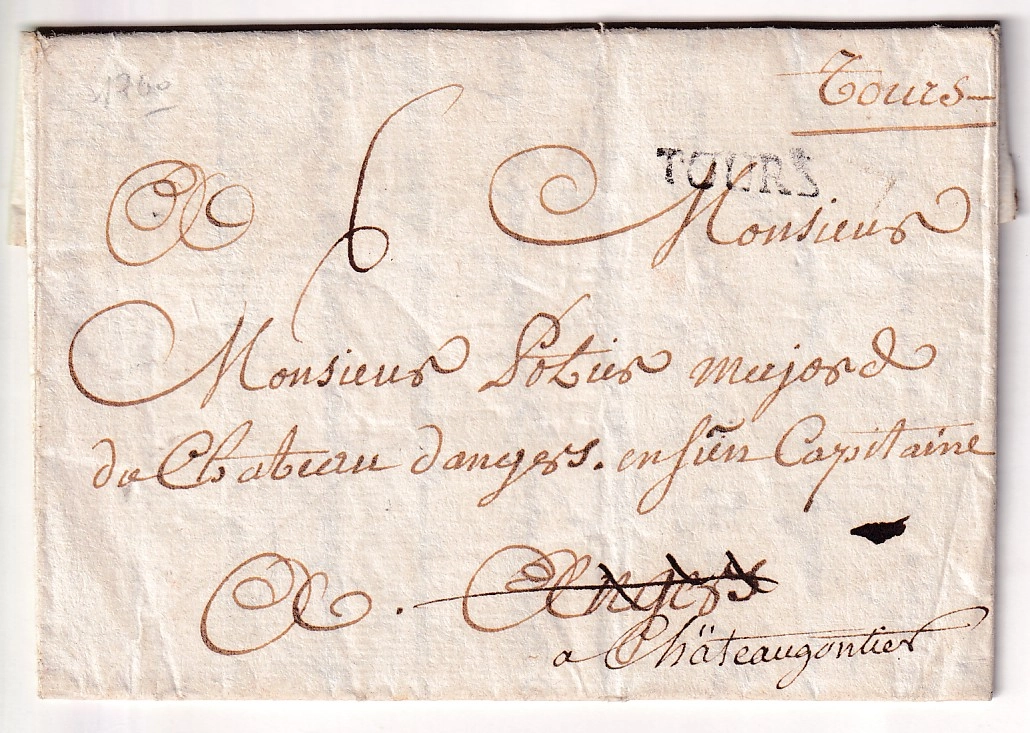 1760
Tours
TOURS
A 6 Monsieur
Monsieur Potier major d
de Chateau dangers. en Capitaine
A. Angers
a Châteaugontier